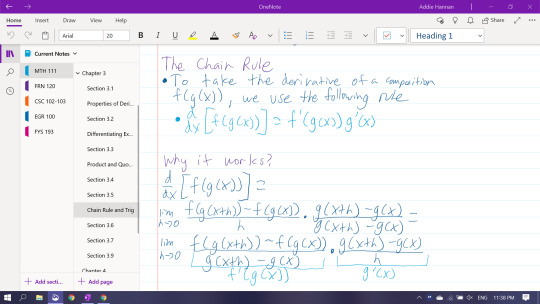 OneNote
Addie Hannan
File Home Insert Draw View Help
Share
Arial 20 B I U A Heading 1
Current Notes
MTH 111
FRN 120
CSC 102-103
EGR 100
FYS 193
Chapter 3
Section 3.1
Properties of Deri...
Section 3.2
Differentiating Ex...
Section 3.3
Product and Quo...
Section 3.4
Section 3.5
Chain Rule and Trig
Section 3.6
Section 3.7
Section 3.9
Chapter 4
+ Add secti...
+ Add page
The Chain Rule
• To take the derivative of a composition
f(g(x)), we use the following rule
• d/dx [f(g(x))] = f'(g(x)) g'(x)
Why it works?
d/dx [f(g(x))] =
lim h→0 f(g(x+h)) - f(g(x)) / h • g(x+h) - g(x) / g(x+h) - g(x) =
lim h→0 f(g(x+h)) - f(g(x)) / g(x+h) - g(x) • g(x+h) - g(x) / h
f'(g(x)) g'(x)
ENG 11:38 PM